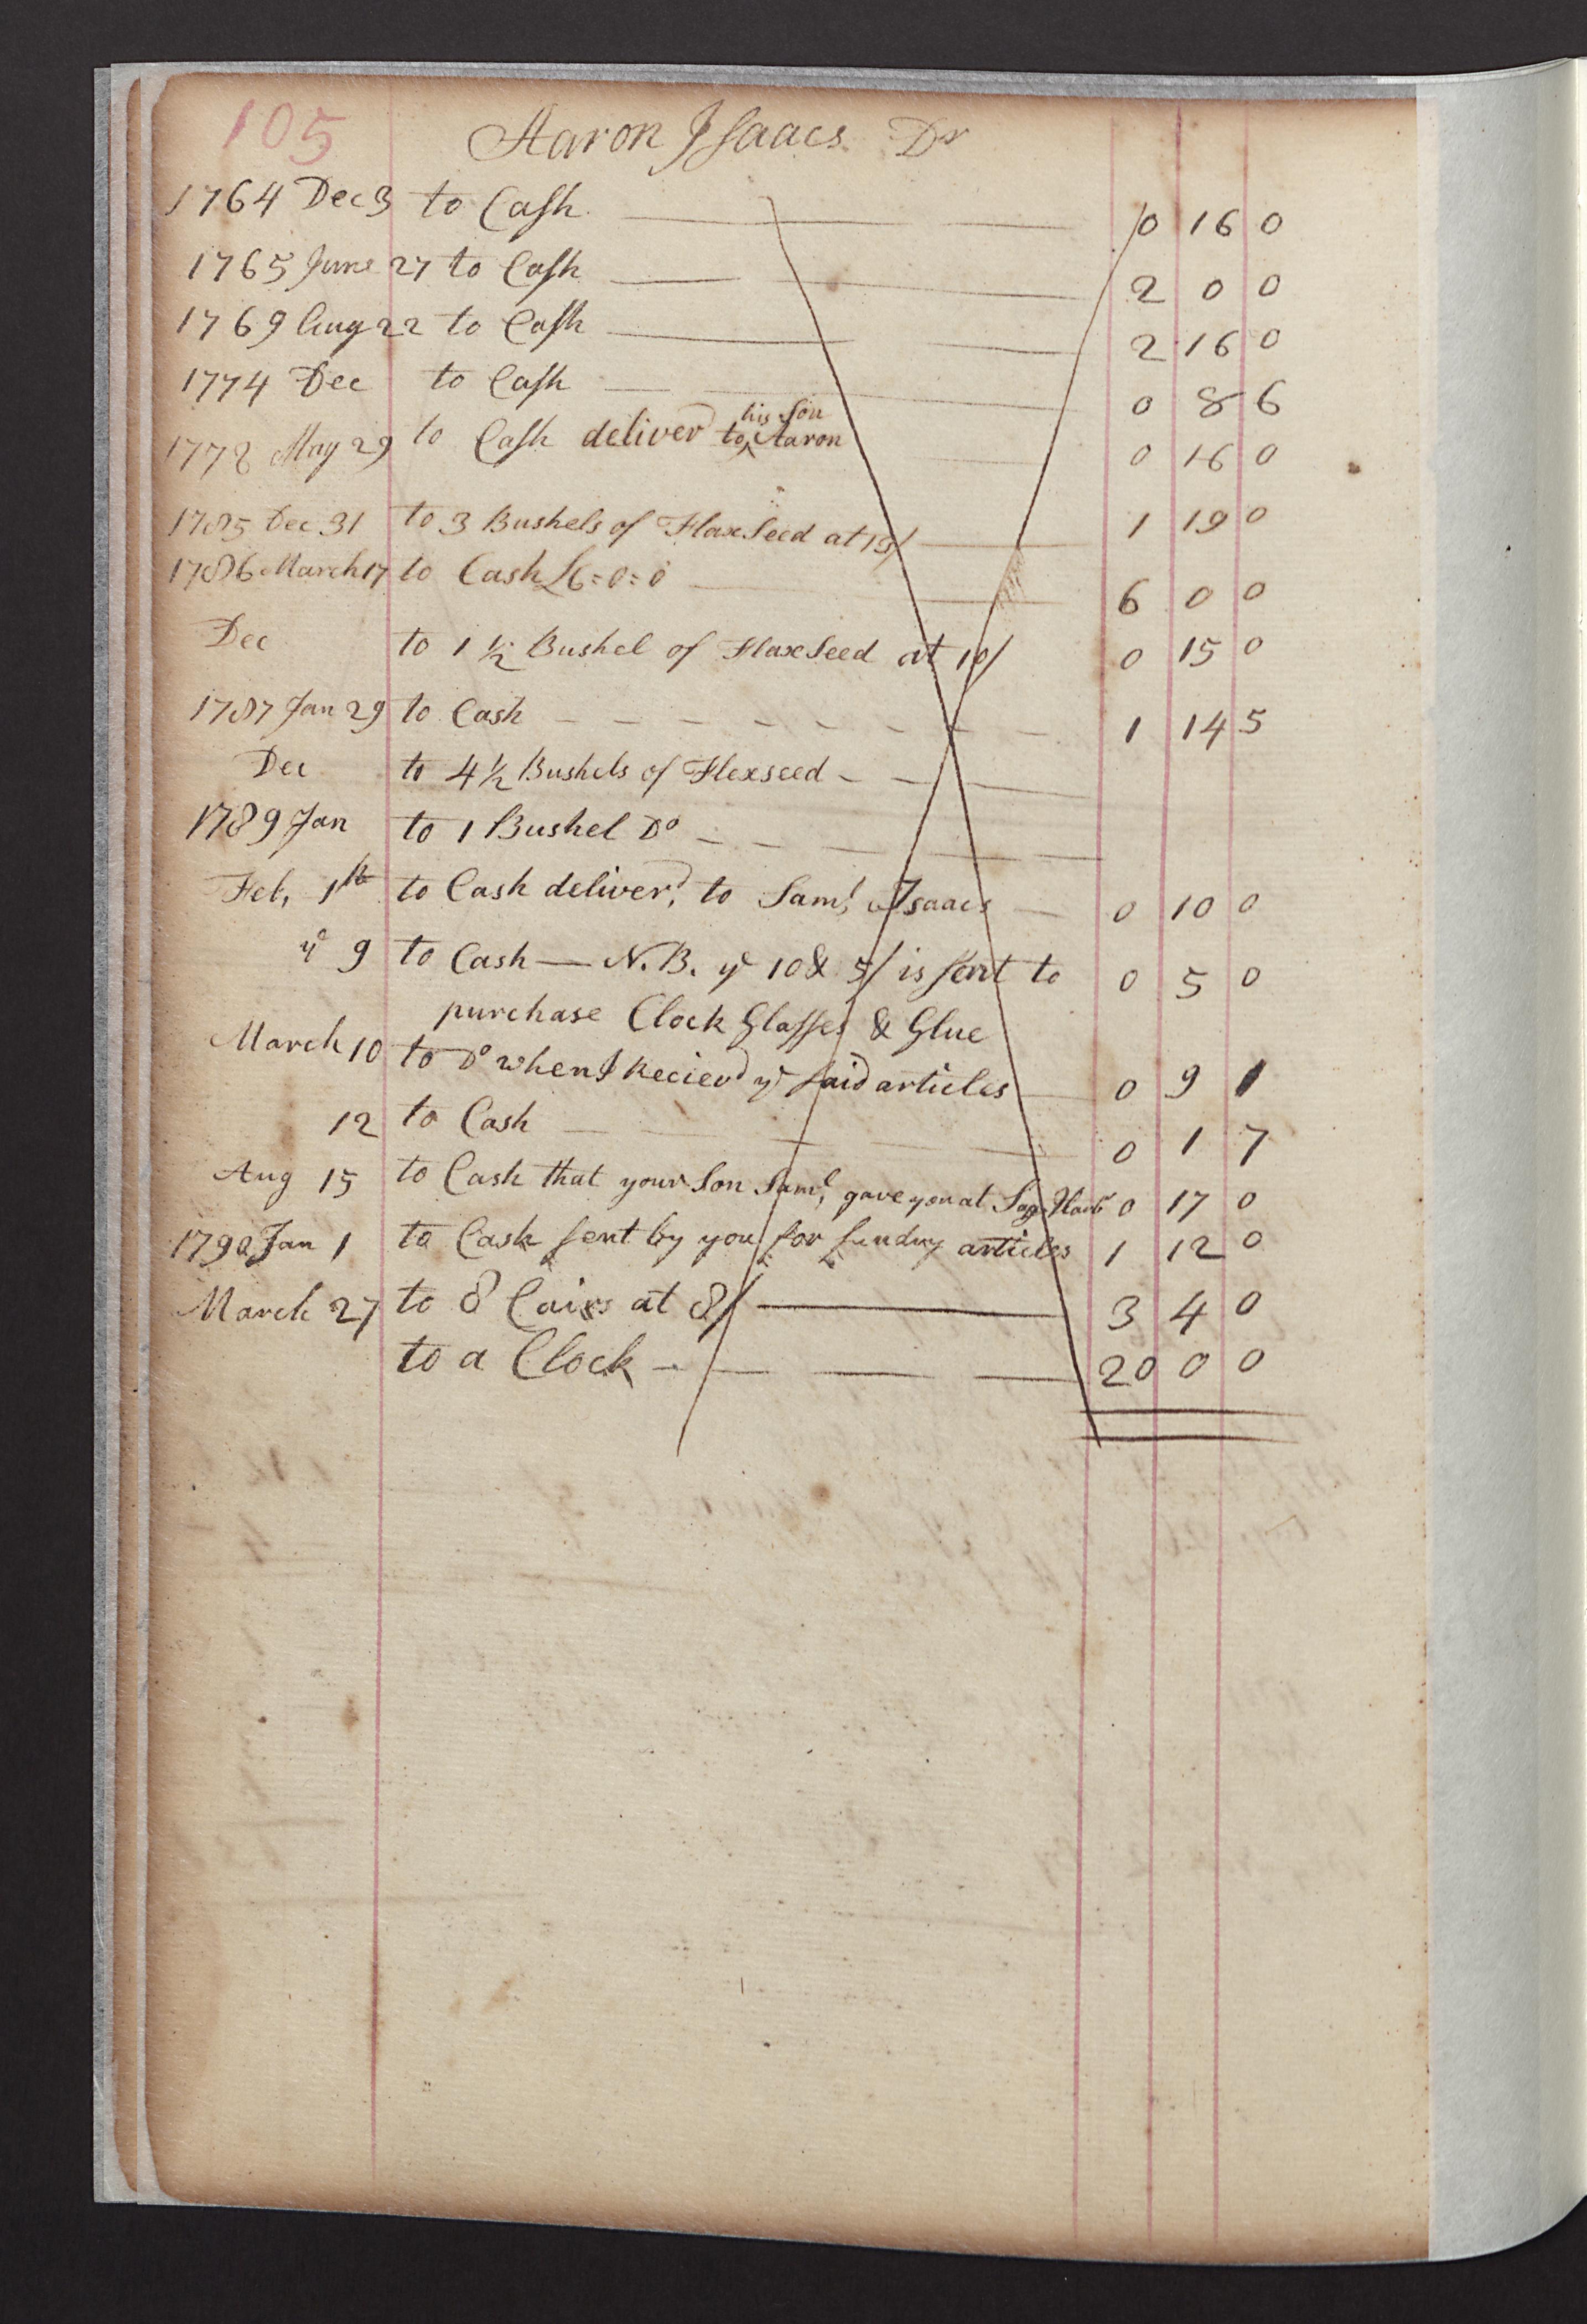 105 Aaron Isaacs Dr
1764 Dec 3 to Cash 0 16 0
1765 June 27 to Cash 2 0 0
1769 Aug 22 to Cash 2 16 0
1774 Dec to Cash 0 8 6
his Son
1778 May 29 to Cash deliverd to ^ Aaron 0 16 0
1785 Dec 31 to 3 Bushels of Flax Seed at 13/ 1 19 0
1786 March 17 to Cash £6=0=0 6 0 0
Dec to 1 1/2 Bushel of Flax Seed at 10/ 0 15 0
1787 Jan 29 to Cash 1 14 5
Dec to 4 1/2 Bushels of Flexseed
1789 Jan to 1 Bushel Do
Feb, 1st to Cash deliverd, to Saml, Isaacs 0 10 0
ye 9 to Cash — N.B. ye 10 & 5/ is sent to 0 5 0
purchase Clock Glasses & Glue
March 10 to Do when I Recievd ye said articles 0 9 1
12 to Cash 0 1 7
Aug 15 to Cash that your Son Saml, gave you at Sag Harb 0 17 0
1790 Jan 1 to Cash sent by you for sundry articles 1 12 0
March 27 to 8 Cairs at 8/ 3 4 0
to a Clock 20 0 0